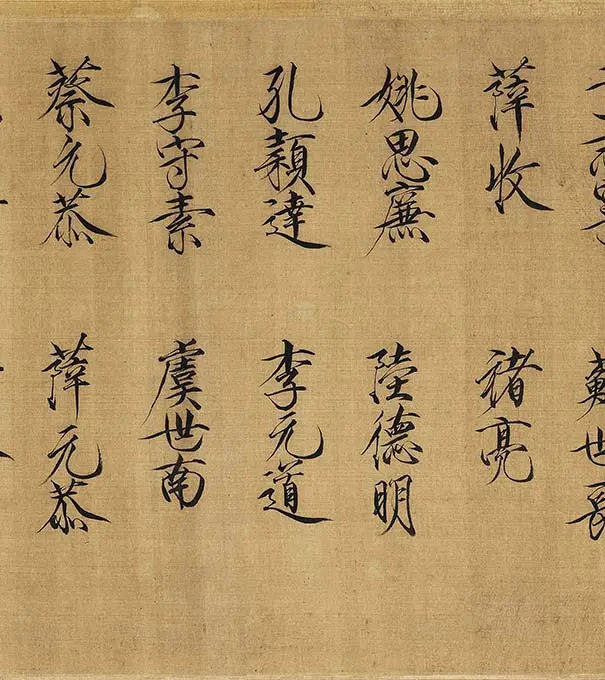 蘇世長
薛收
褚亮
姚思廉
陸德明
孔穎達
李元道
李守素
虞世南
蔡元恭
薛元恭